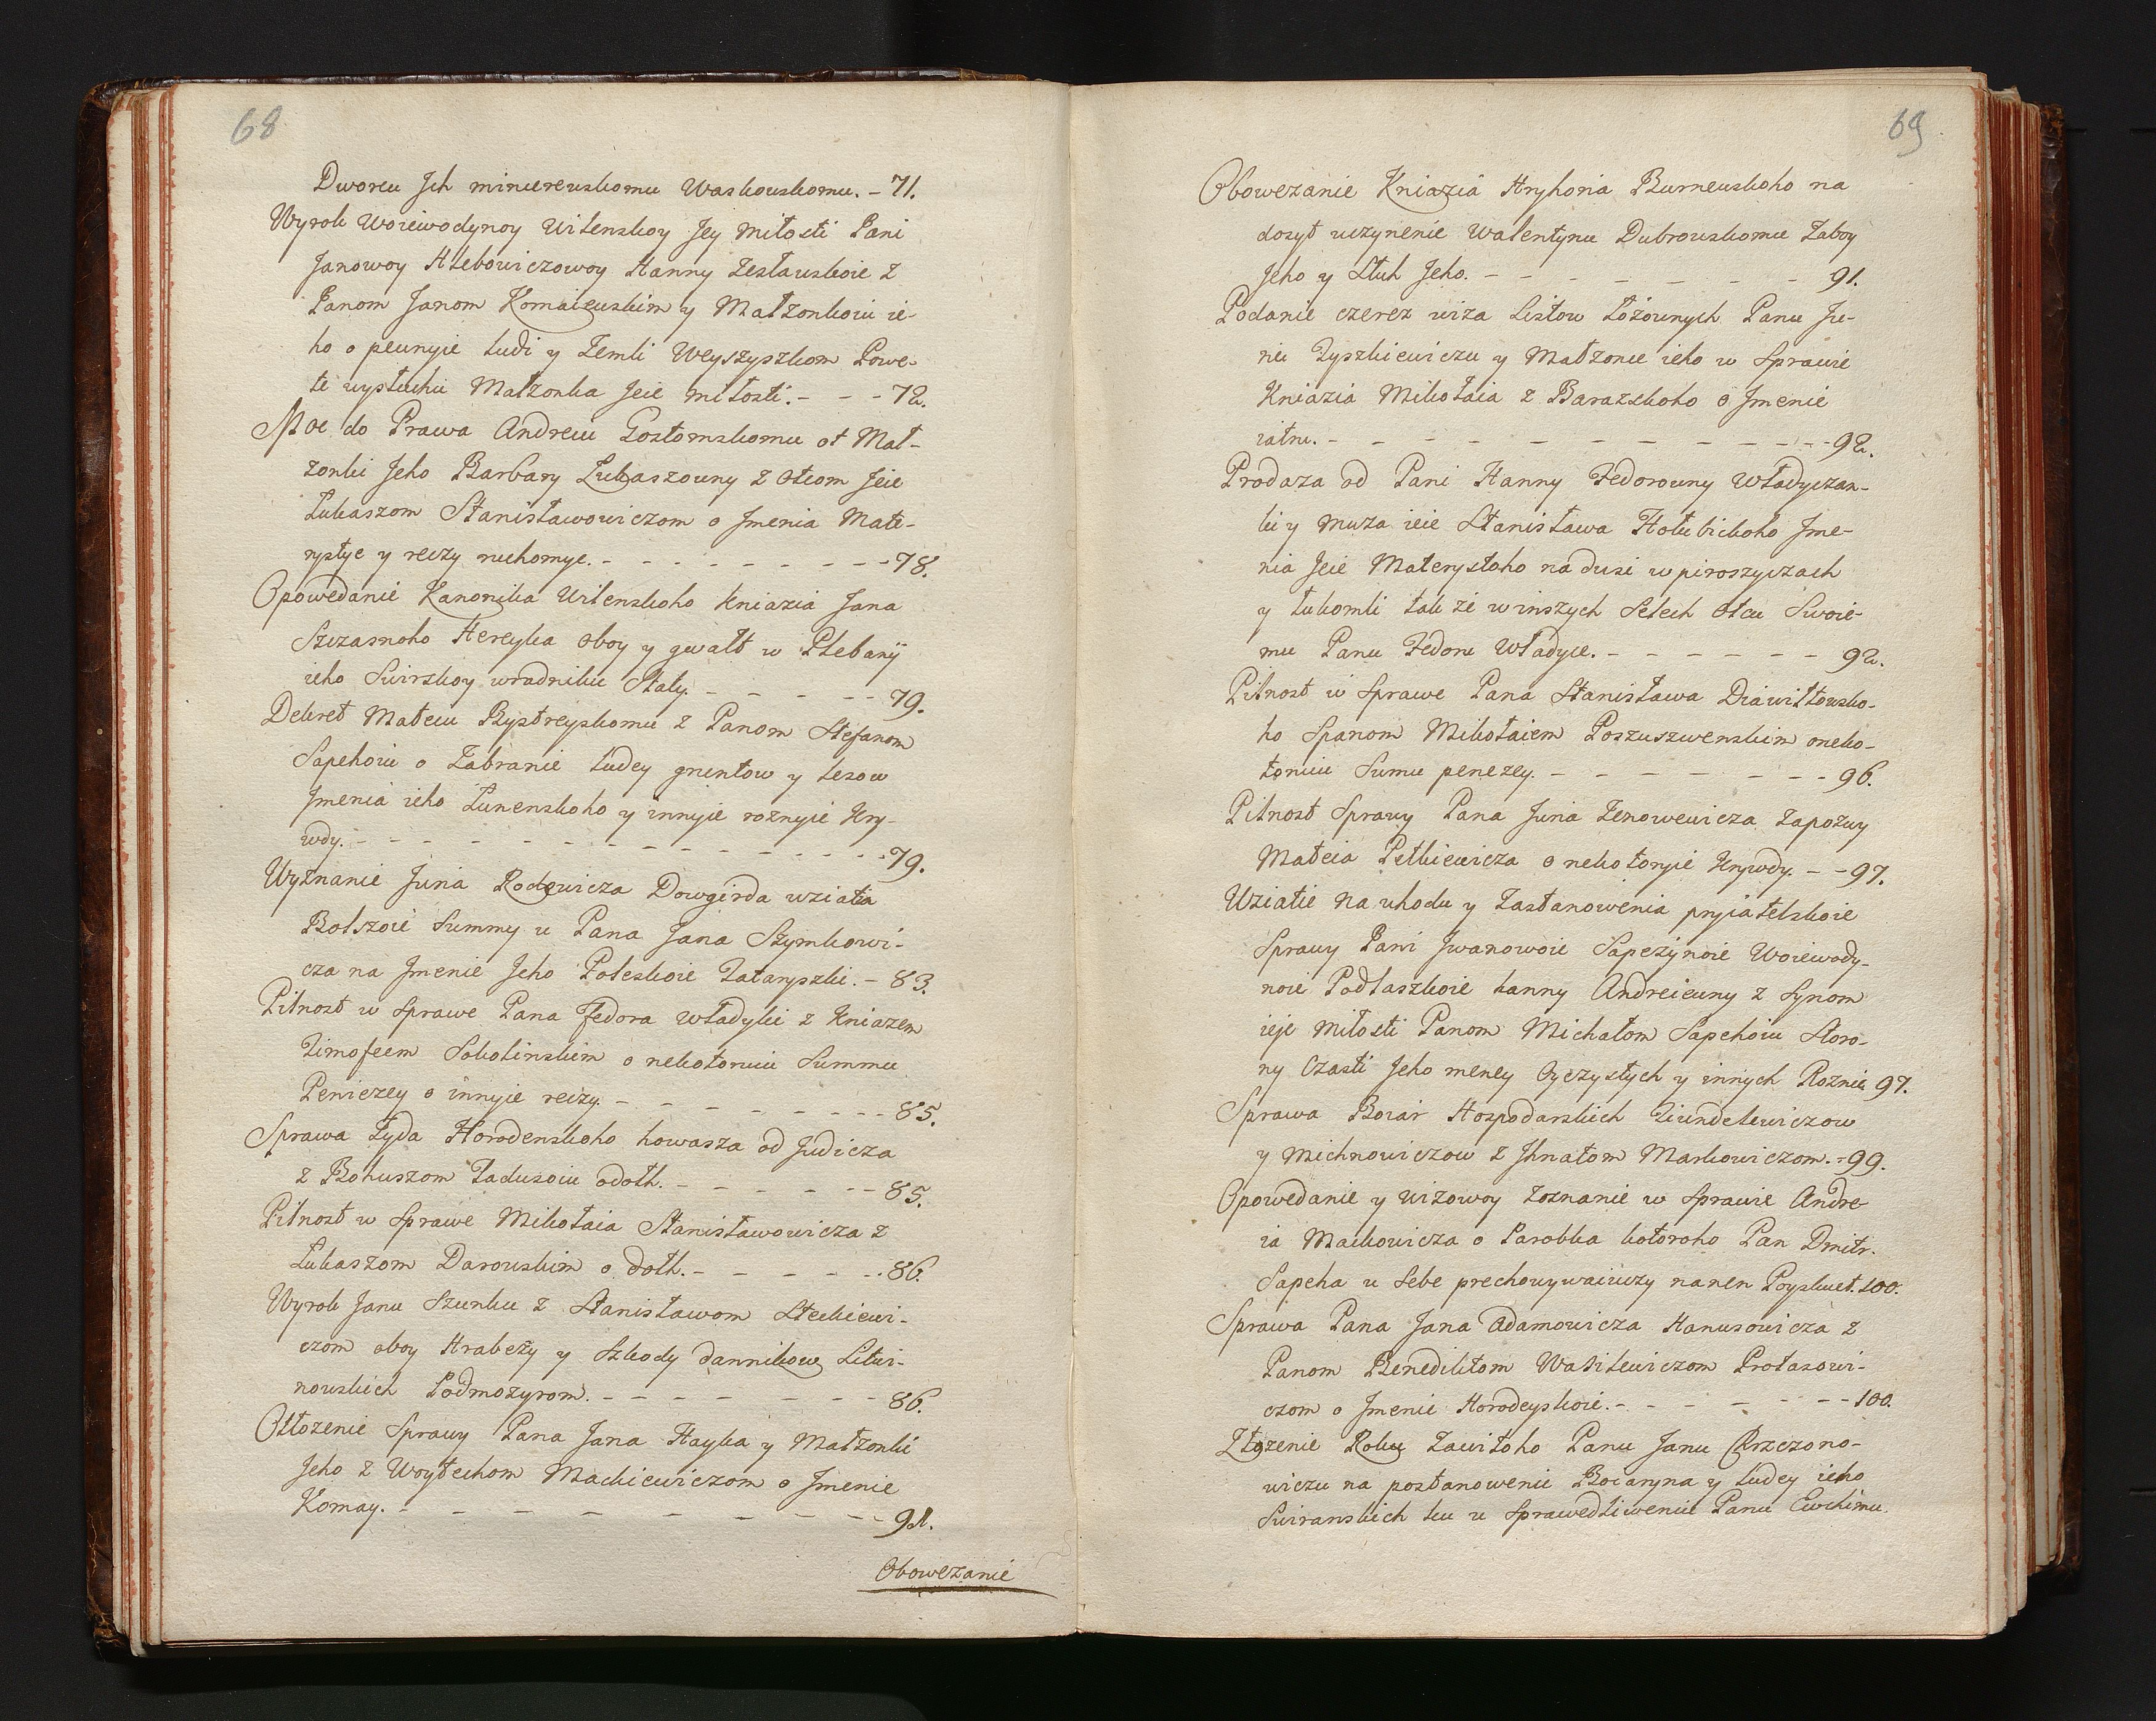 68
Dworcu Jch mincereuskomu Waskouskomu. - 71.
Wyrok Woiewodynoy Wilenskoy Jey Miłosti Pani
Janowoy Hlebowiczowoy Hanny Zesławskoie z
Panom Janom Komaieuskim y Małzonkoiu ie-
ho o peunyie ludi y Zemli Weyszyszkom Powe-
te wysłuhu Małzonka Jeie miłosti. - - - 72.
Moc do Prawa Andreiu Gostomskomu ot Mał-
zonki Jeho Barbary Łukaszouny z Otcom Jeie
Łukaszom Stanisławowiczom o Jmenia Mate-
rystye y reczy ruchomye. - - - - - - - - 78.
Opowedanie Kanonika Wilenskoho Kniazia Jana
Szczasnoho Hereyka oboy y gwałt w Plebanij
ieho Swirskoy wradniku Staly. - - - - - 79.
Dekret Mateiu Bystreyskomu z Panom Stefanom
Sapehoiu o Zabranie ludey gruntow y lesow
Jmenia ieho Łunenskoho y innyie roznyie Kry-
wdy. - - - - - - - - - - - - - 79.
Wyznanie Juria Rodewicza Dowgirda wziatia
Bolszoie Summy u Pana Jana Szymkowi-
cza na Jmenie Jeho Poleskoie Tataryszki. - 83.
Pilnost w Sprawe Pana Fedora Władyki z Kniazem
Timofeem Sokolinskim o nekotoruiu Summu
Peniezey o innyie reczy. - - - - - - - 85.
Sprawa Żyda Horodenskoho howasza od Judicza
z Bohuszom Tadusoiu odolh. - - - - - - 85.
Pilnost w Sprawe Mikołaia Stanisławowicza z
Łukaszom Darouskim o dolh. - - - - - - 86.
Wyrok Janu Szunku z Stanisławom Steckiewi-
czom oboy Hrabeży y Szkody dannikow Litwi-
nouskich Podmozyrom. - - - - - - - 86.
Otłozenie Sprawy Pana Jana Hayka y Małzonki
Jeho z Woytechom Mackiewiczom o Jmenie
Komay. - - - - - - - - - 91.
Obowezanie
69
Obowezanie Kniazia Hryhoria Burneuskoho na
dosyt uczynenie Walentynu Dubrouskomu Zaboy
Jeho y Sluh Jeho. - - - - - - - 91.
Podanie czerez wiza Listow Łóżownych Panu Ju-
riu Tyszkiewiczu y Małzonce ieho w Sprawie
Kniazia Mikołaia z Barazskoho o Jmenie
iatru. - - - - - - - - - - - 92.
Prodaza od Pani Hanny Fedorouny Władyczan-
ki y muza ieie Stanisława Hołubickoho Jme-
nia Jeie Materystoho na dusi w piroszyczach
y łukomli tak że w inszych Selech Otcu Swoie-
mu Panu Fedoru Władyce. - - - - - - 92.
Pilnost w Sprawe Pana Stanisława Diawiłtowsko-
ho Spanom Mikołaiem Poszuszwenskim oneko-
toruiu Sumu penezey. - - - - - - - 96.
Pilnost Sprawy Pana Juria Zenowewicza Zapozwy
Mateia Petkiewicza o nekotoryie Krywdy. - - 97.
Uziatie na uhodu y Zastanowenia pryiatelskoie
Sprawy Pani Jwanowoie Sapeżynoie Woiewody-
noie Podlaszkoie hanny Andreieuny z Synom
ieje Miłosti Panom Michałom Sapehoiu Storo-
ny Czasti Jeho meney Oyczystych y innych Roznic 97.
Sprawa Boiar Hospodarskich Ziundelewiczow
y Michnowiczow z Jhnatom Markowiczom. - 99.
Opowedanie y wizowoy Zoznanie w Sprawie Andre-
ia Mackowicza o Parobka kotoroho Pan Dmitr.
Sapeha u Sebe prechowywaiuczy nanen Poyskuet. 100.
Sprawa Pana Jana Adamowicza Hanusowicza z
Panom Benediktom Wasilewiczom Protasowi-
czom o Jmenie Horodeyskoie. - - - - - - - 100.
Złozenie Roku Zawitoho Panu Janu Orzczono-
wiczu na postanowenie Boiaryna y ludey ieho
Swiranskich ku u Sprawedliweniu Panu Ewchimu.